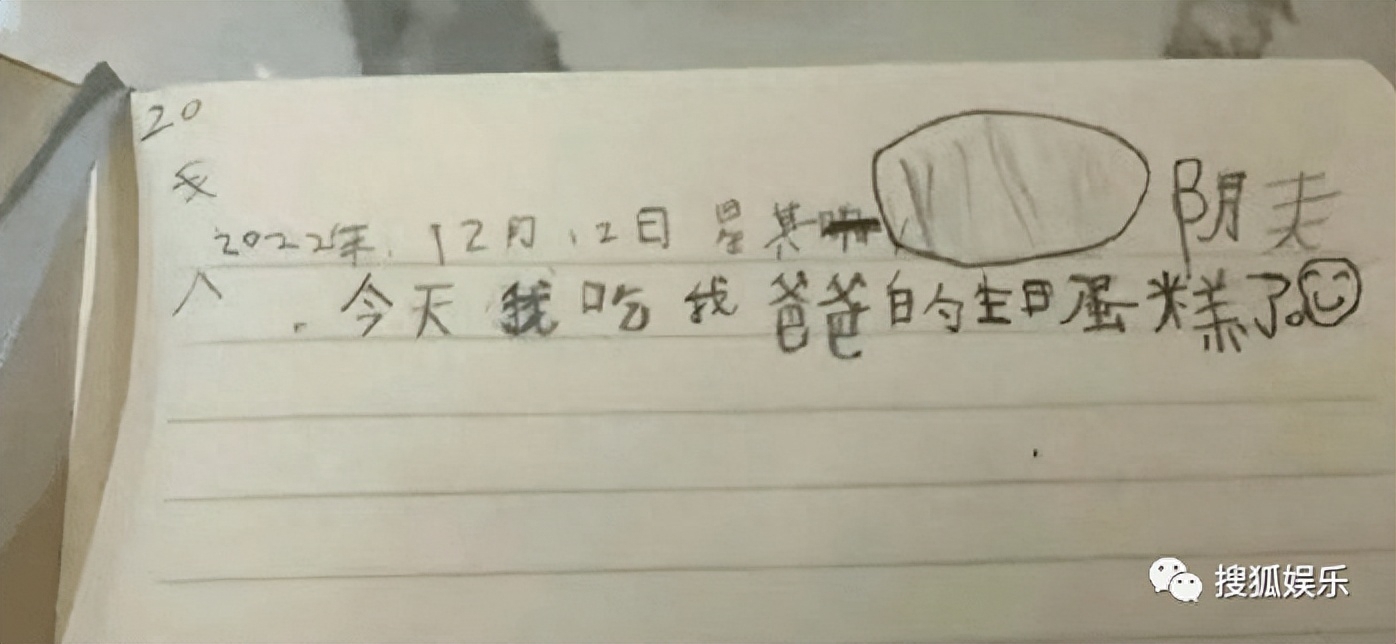 20
我
2022年.12月.2日 星其 阴天
人
.今天我吃我爸爸的生日蛋糕了。
搜狐娱乐